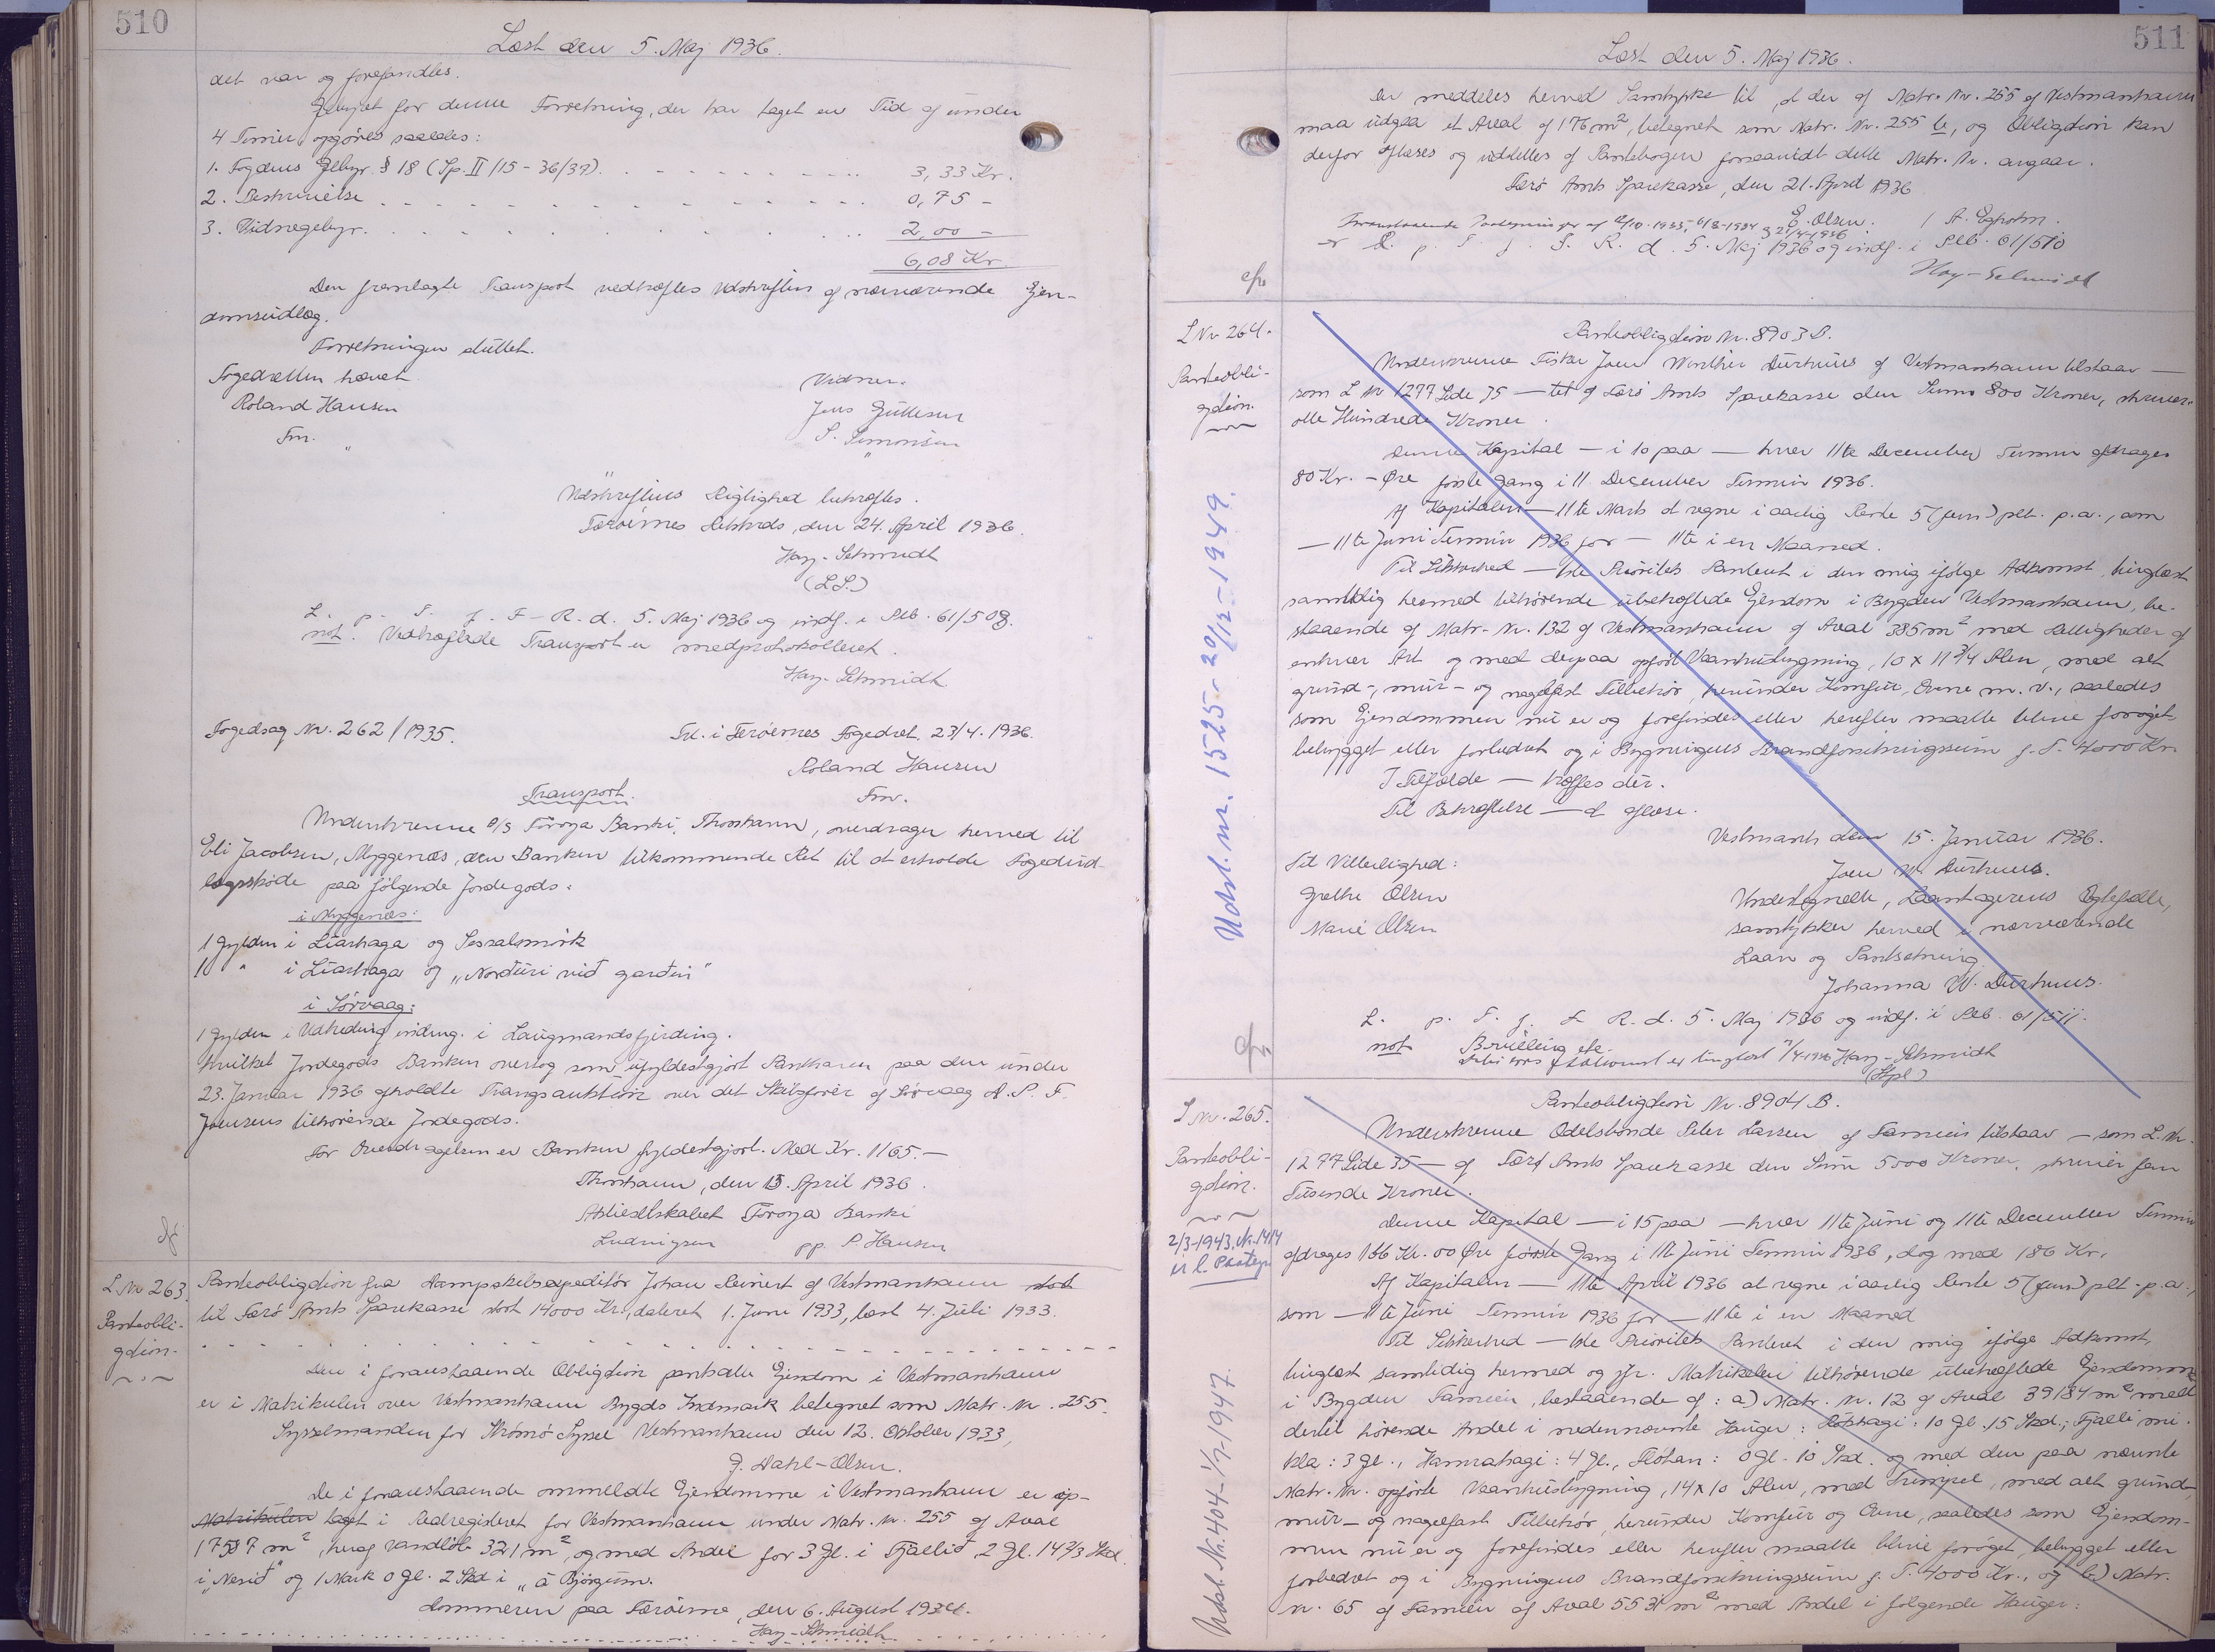 510
Læst den 5. Maj 1936.
det var og forefandtes.
Gebyret for denne Forretning, der har taget en Tid af under
4 Timer, opgøres saaledes:
1. Fogdens Gebyr. § 18 (Sp. II /15 - 36/37). 3,33 Kr.
2. Beskrivelse 0,75 -
3. Vidnegebyr. 2,00 -
6,08 Kr.
Den fremlagte Transport vedhæftes Udskriften af nærværende Ejen-
domsudlæg.
Forretningen sluttet.
Fogedretten hævet. Vidner.
Roland Hansen Jens
Fm. " S. Simonsen
"
Udskriftens Rigtighed bekræftes.
Færøernes Retskreds, den 24. April 1936.
Hay-Schmidt
(L.S.)
L. p. T. f. F - R. d. 5. Maj 1936 og indf. i Ptb. 61/508.
not. Vedhæftede Transport er medprotokolleret.
Hay-Schmidt
Fogedsag Nr. 262/1935. Frl. i Færøernes Fogedret, 23/4. 1936.
Roland Hansen
Fm.
Transport.
Underskrevne A/S Föroya Banki, Thorshavn, overdrager herved til
Eli Jacobsen, Myggenæs, den Banken tilkommende Ret til at erholde Fogedud-
lægsskøde paa følgende Jordegods:
i Myggenæs:
1 Gylden i Líarhaga og
1 " i Líarhaga og „Norduri við garðin"
i Sörvaag:
1 Gylden i Udhedning indmg. i Laugmandsfjerding.
hvilket Jordegods Banken overtog som ufyldestgjort Panthaver paa den under
23. Januar 1936 afholdte Tvangsauktion over det Skibsfører af Sörvaag
Joensens tilhørende Jordegods.
For Overdragelsen er Banken fyldestgjort. Med Kr. 1165.-
Thorshavn, den 15. April 1936.
Aktieselskabet Föroya Banki
Ludvigsen pp. P. Hansen
L Nr 263. Pantobligation fra Dampskibsexpeditör Johan Reinert af Vestmanhavn stort
Pantobli- til Færö Amts Sparekasse stort 14000 Kr., dateret 1. Juni 1933, læst 4. Juli 1933.
gation.
Den i foranstaaende Obligation pantsatte Ejendom i Vestmanhavn
er i Matrikulen over Vestmanhavn Bygds Indmark betegnet som Matr. Nr. 255.
Sysselmanden for Strömö Syssel Vestmanhavn den 12. Oktober 1933,
J. Dahl-Olsen.
De i foranstaaende ommeldte Ejendomme i Vestmanhavn er op-
Matrikulen taget i Realregistret for Vestmanhavn under Matr. Nr. 255 af Areal
17587 m², heraf vandløb 321 m², og med Andel for 3 Gl. i Fjallið, 2 Gl. 14 2/3 Skd.
i „Nesið" og 1 Mark 0 Gl. 2 Skd i „á Björgum.
Dommeren paa Færøerne, den 6. August 1934.
Hay-Schmidt
511
Læst den 5. Maj 1936.
Der meddeles herved Samtykke til, at der af Matr. Nr. 255 af Vestmanhavn
maa udgaa et Areal af 176 m², betegnet som Matr. Nr. 255 b, og Obligation kan
derfor aflæses og udslettes af Pantebogen forsaavidt dette Matr. Nr. angaar.
Færö Amts Sparekasse, den 21. April 1936
E. Olsen. / A. Egholm.
Foranstaaende Paategninger af 12/10 1933, 6/8-1934 og 21/4-1936
er L. p. T. f. F. R. d. 5. Maj 1936 og indf. i Ptb. 61/510
Hay-Schmidt
L Nr 264. Pantobligation Nr. 8903 B.
Pantobli-
gation.
Underskrevne Fisker Joen Winther Durhuus af Vestmanhavn tilstaar —
som L Nr 1277 Side 35 — tet af Færö Amts Sparekasse den Summa 800 Kroner, skriver
otte Hundrede Kroner.
Denne Kapital — i 10 paa — hver 11te December Termin afdrages
80 Kr. - Øre første Gang i 11 December Termin 1936.
Af Kapitalen — 11te Marts at regne i aarlig Rente 5 (fem) pct. p.a., som
— 11te Juni Termin 1936 for — 11te i en Maaned.
Til Sikkerhed — 1ste Prioritets Panteret i den mig ifølge Adkomst, tinglæst
samtidig hermed tilhørende ubehæftede Ejendom i Bygden Vestmanhavn, be-
staaende af Matr. Nr. 132 af Vestmanhavn af Areal 385 m² med Herligheder af
enhver Art og med derpaa opført Vaaningshusbygning, 10 x 11 3/4 Alen, med alt
grund-, mur- og nagelfast Tilbehør, herunder Komfur, Ovne m.v., saaledes
som Ejendommen nu er og forefindes eller herefter maatte blive forøget,
bebygget eller forbedret og i Bygningens Brandforsikringssum f. T. 4000 Kr.
I Tilfælde — træffes der.
Til Bekræftelse — at aflæse.
Vestmanh den 15. Januar 1936.
Til Vitterlighed: Joen W. Durhuus.
Grethe Olsen Undertegnede, Laantagerens Ægtefælle,
Marie Olsen samtykker herved i nærværende
Laan og Pantsætning.
Johanna W. Durhuus.
L. p. T. f. F R. d. 5. Maj 1936 og indf. i Ptb. 61/511.
not. Hay-Schmidt
(Stpl)
Udsl. nr. 1525 - 20/12 - 1949.
L Nr. 265. Pantobligation Nr. 8904 B.
Pantobli-
gation.
2/3-1943, Nr. 1414
Underskrevne Odelsbonde Peter Larsen af Famien tilstaar — som L. Nr.
1277 Side 35 — af Færö Amts Sparekasse den Sum 5000 Kroner, skriver fem
Tusende Kroner.
Denne Kapital — i 15 paa — hver 11te Juni og 11te December Termin
afdrages 166 Kr. 00 Øre første Gang i 11te Juni Termin 1936, dog med 186 Kr.
Af Kapitalen — 11te April 1936 at regne i aarlig Rente 5 (fem) pct. p.a.,
som — 11te Juni Termin 1936 for — 11te i en Maaned
Til Sikkerhed — 1ste Prioritets Panteret i den mig ifølge Adkomst,
tinglæst samtidig hermed og jfr. Matrikelen tilhørende ubehæftede Ejendomme
i Bygden Famien, bestaaende af: a) Matr. Nr. 12 af Areal 39184 m² med
dertil hørende Andel i nedennævnte Hauger: 10 Gl. 15 Skd.; Fjalli mi-
kla: 3 Gl., Hamrahagi: 4 Gl., Flöhan: 0 Gl. 10 Skd. og med den paa nævnte
Matr. Nr. opførte Vaaningshusbygning, 14 x 10 Alen, med alt grund-,
mur- og nagelfast Tilbehør, herunder Komfur og Ovne, saaledes som Ejendom-
men nu er og forefindes eller herefter maatte blive forøget, bebygget eller
forbedret og i Bygningens Brandforsikringssum f. T. 4000 Kr., og b.) Matr.
Nr. 65 af Famien af Areal 5531 m² med Andel i følgende Hauger:
Udsl. Nr. 404 - 1/7-1947.